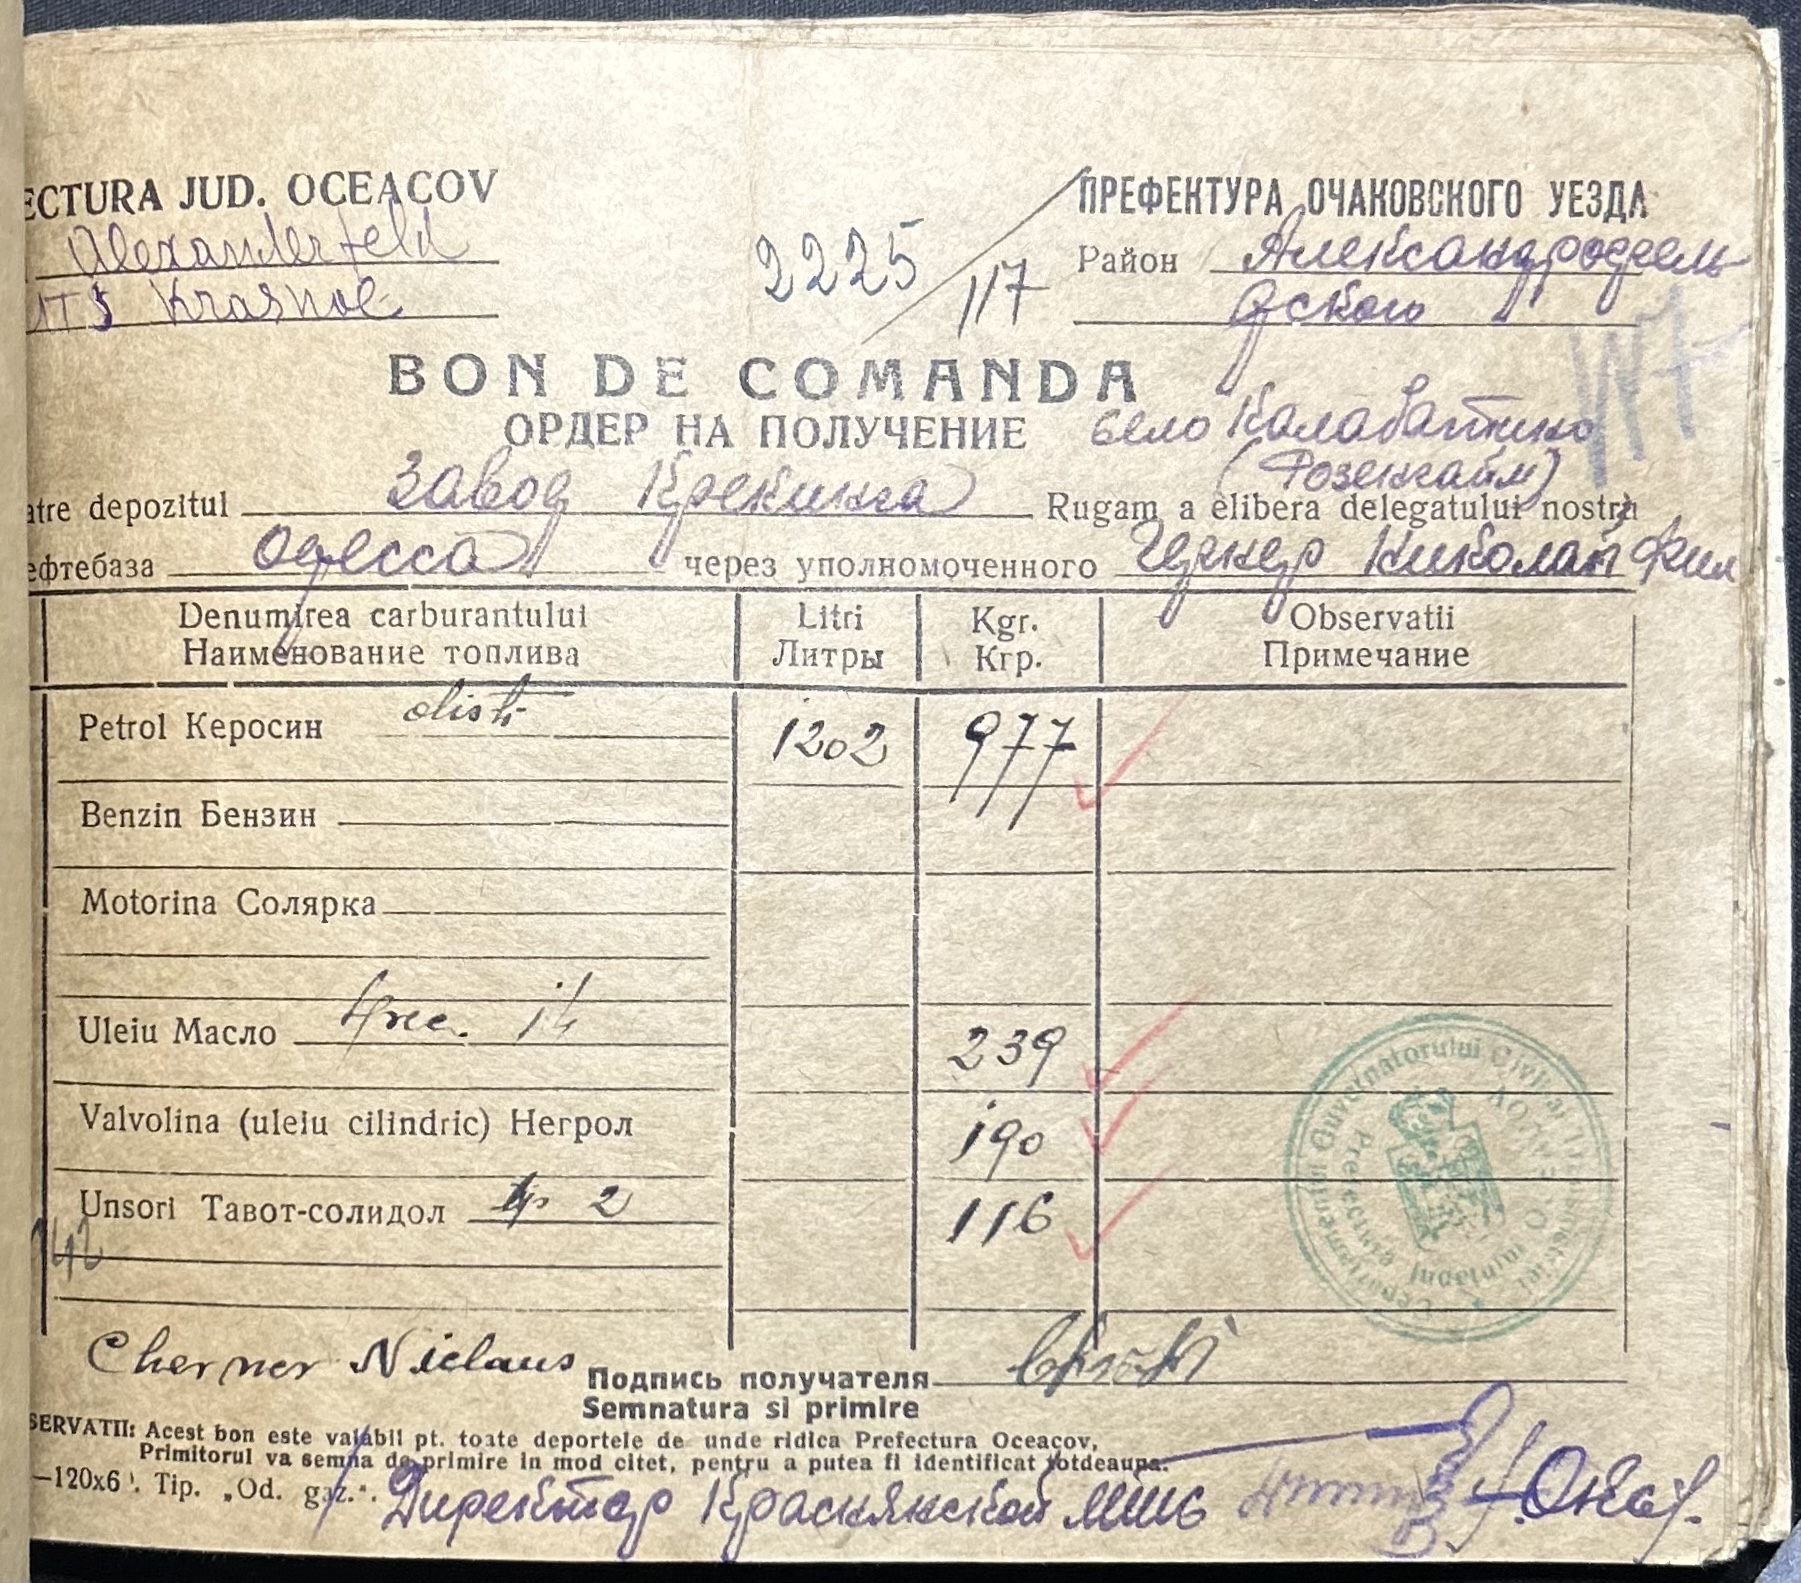 ECTURA JUD. OCEACOV
ПРЕФЕКТУРА ОЧАКОВСКОГО УЕЗДА
Alexanderfeld
2225/117
Район Александрофель
MTS Krasnoe
дского
117
BON DE COMANDA
ОРДЕР НА ПОЛУЧЕНИЕ
село Калабатино
(Розенгайм)
atre depozitul Завод Крекинга Rugam a elibera delegatului nostru
ефтебаза Одесса через уполномоченного Николай Фил
Denumirea carburantului Litri Kgr. Observatii
Наименование топлива Литры Кгр. Примечание
Petrol Керосин dist. 1202 977
Benzin Бензин
Motorina Солярка
Uleiu Масло 239
Valvolina (uleiu cilindric) Негрол 190
Unsori Тавот-солидол 2 116
142
Cherner Niclaus
Подпись получателя
Semnatura si primire
SERVATII: Acest bon este valabil pt. toate deportele de unde ridica Prefectura Oceacov,
Primitorul va semna de primire in mod citet, pentru a putea fi identificat totdeauna.
—120x6 . Tip. „Od. gaz.".
Директор Краснянской МТС
Guvernatorului Civil al Transnistriei
Prefectura Judetului